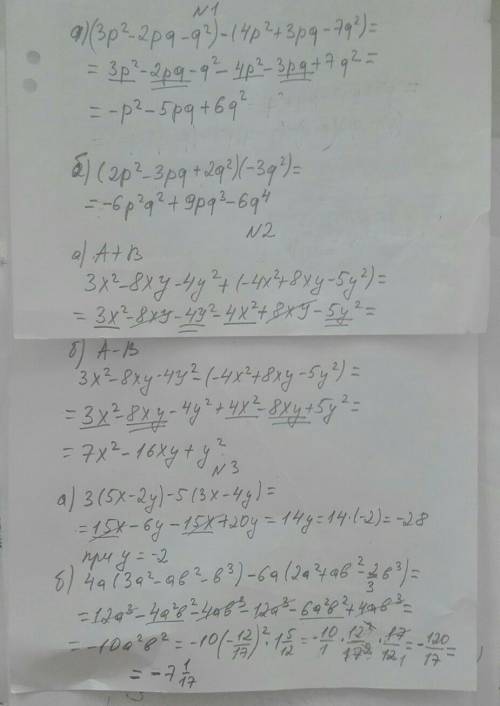 N1
а) (3p²-2pq-q²)-(4p²+3pq-7q²)=
= 3p²-2pq-q²-4p²-3pq+7q²=
= -p²-5pq+6q²
б) (2p²-3pq+2q²)(-3q²)=
= -6p²q²+9pq³-6q⁴
N2
а) A+B
3x²-8xy-4y²+(-4x²+8xy-5y²)=
= 3x²-8xy-4y²-4x²+8xy-5y²=
б) A-B
3x²-8xy-4y²-(-4x²+8xy-5y²)=
= 3x²-8xy-4y²+4x²-8xy+5y²=
= 7x²-16xy+y²
N3
а) 3(5x-2y)-5(3x-4y)=
= 15x-6y-15x+20y=14y=14·(-2)=-28
при y=-2
б) 4a(3a²-aв²-в³)-6a(2a²+aв²-2/3в³)=
= 12a³-4a²в²-4aв³-12a³-6a²в²+4aв³=
= -10a²в²= -10(-12/17)²·1 5/12=-10/1·12²/17²·17/12=-120/17=
= -7 1/17